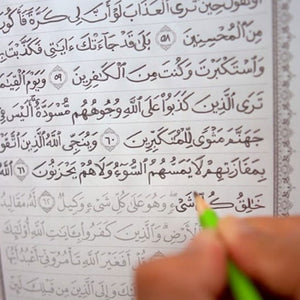 أَوْ تَقُولَ حِينَ تَرَى ٱلْعَذَابَ لَوْ أَنَّ لِى كَرَّةً فَأَكُونَ
مِنَ ٱلْمُحْسِنِينَ ٥٨ بَلَىٰ قَدْ جَآءَتْكَ ءَايَٰتِى فَكَذَّبْتَ
وَٱسْتَكْبَرْتَ وَكُنتَ مِنَ ٱلْكَٰفِرِينَ ٥٩ وَيَوْمَ ٱلْقِيَٰمَةِ
تَرَى ٱلَّذِينَ كَذَبُوا۟ عَلَى ٱللَّهِ وُجُوهُهُم مُّسْوَدَّةٌ أَلَيْسَ
جَهَنَّمَ مَثْوًى لِّلْمُتَكَبِّرِينَ ٦٠ وَيُنَجِّى ٱللَّهُ ٱلَّذِينَ ٱتَّقَوْا۟
بِمَفَازَتِهِمْ لَا يَمَسُّهُمُ ٱلسُّوٓءُ وَلَا هُمْ يَحْزَنُونَ ٦١ ٱللَّهُ
خَٰلِقُ كُلِّ شَىْءٍ وَهُوَ عَلَىٰ كُلِّ شَىْءٍ وَكِيلٌ ٦٢ لَّهُۥ مَقَالِيدُ
وَٱلْأَرْضِ وَٱلَّذِينَ كَفَرُوا۟ بِـَٔايَٰتِ ٱللَّهِ
أَفَغَيْرَ ٱللَّهِ تَأْمُرُوٓنِّىٓ أَعْبُدُ
وَإِلَى ٱلَّذِينَ مِن قَبْلِكَ